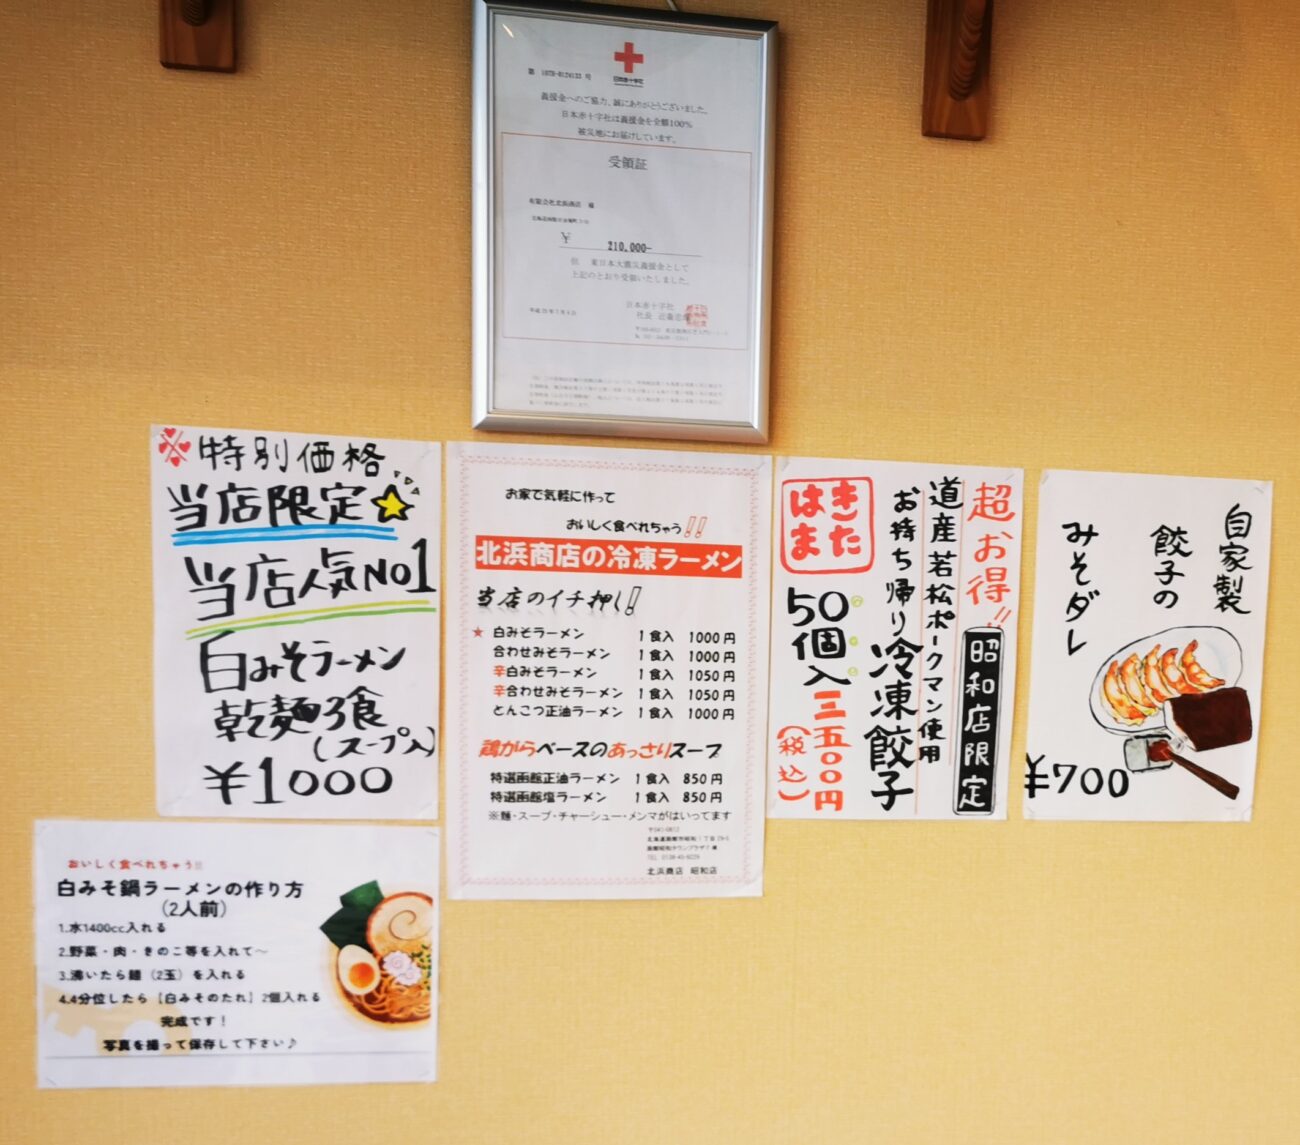 日本赤十字社
義援金へのご協力、誠にありがとうございました。
日本赤十字社は義援金を全額100%
被災地にお届けしています。
受領証
有限会社北浜商店 様
¥ 210,000-
但 東日本大震災義援金として
上記のとおり受領いたしました。
日本赤十字社
社長 近衞忠煇
特別価格
当店限定
当店人気No1
白みそラーメン
乾麺3食
(スープ入)
¥1000
お家で気軽に作って
おいしく食べれちゃう!!
北浜商店の冷凍ラーメン
当店のイチ押し!
★ 白みそラーメン 1食入 1000円
合わせみそラーメン 1食入 1000円
辛白みそラーメン 1食入 1050円
辛合わせみそラーメン 1食入 1050円
とんこつ正油ラーメン 1食入 1000円
鶏がらベースのあっさりスープ
特選函館正油ラーメン 1食入 850円
特選函館塩ラーメン 1食入 850円
※麺・スープ・チャーシュー・メンマがはいってます
〒041-0812
北浜商店 昭和店
超お得!!
昭和店限定
道産若松ポークマン使用
お持ち帰り冷凍餃子
きた
はま
50個入
三五〇〇円
(税込)
自家製
餃子の
みそダレ
¥700
おいしく食べれちゃう!!
白みそ鍋ラーメンの作り方
(2人前)
1.水1400cc入れる
2.野菜・肉・きのこ等を入れて～
3.沸いたら麺(2玉)を入れる
4.4分位したら【白みそのたれ】2個入れる
完成です!
写真を撮って保存して下さい♪